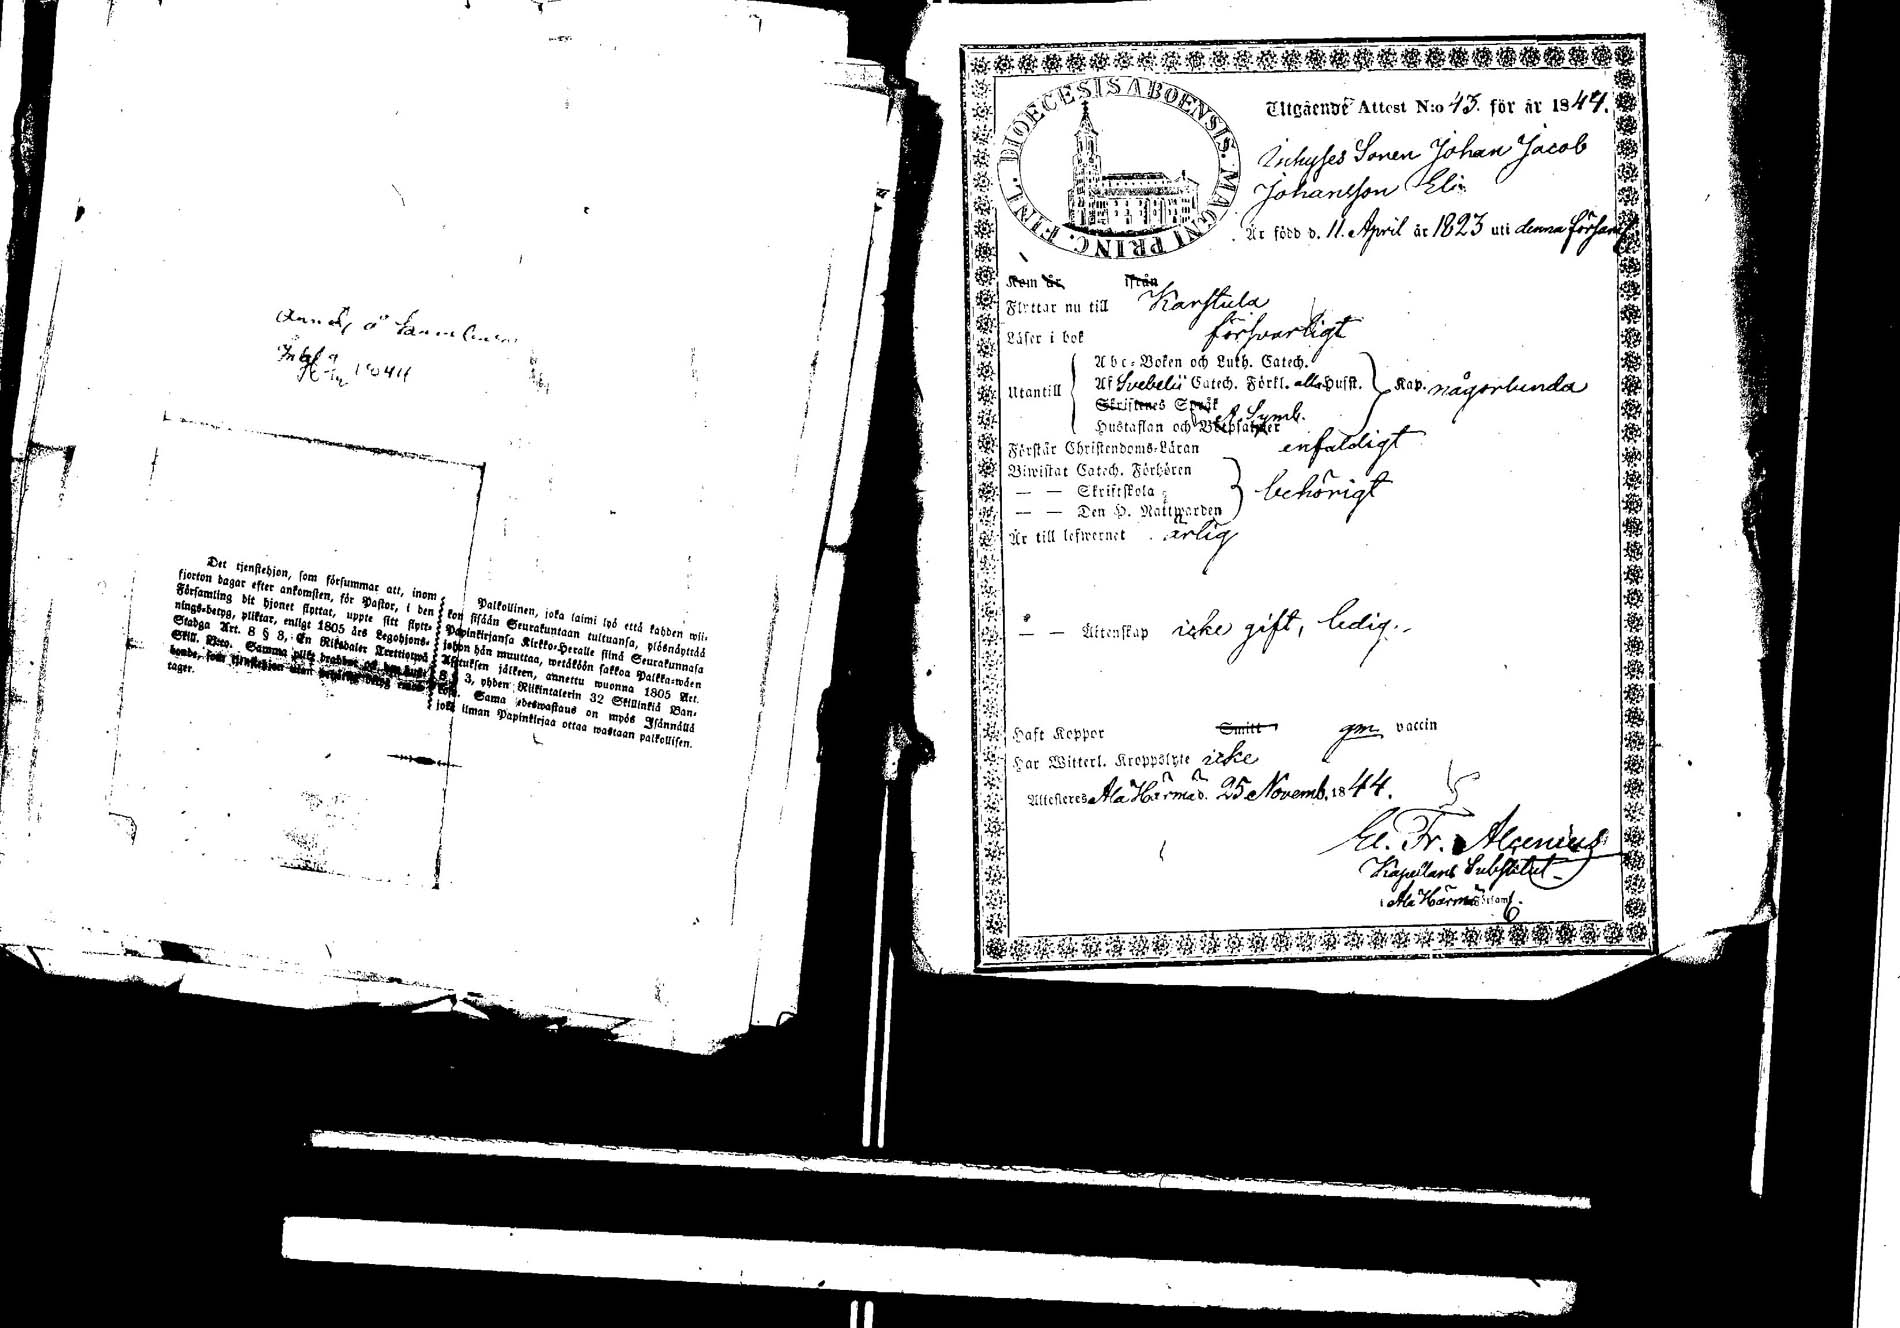 Inkl. 1844
Det tjenstehjon, som försummar att, inom
fjorton dagar efter ankomsten, för Pastor, i den
Församling dit hjonet flyttat, uppte sitt flytt-
nings-betyg, pliktar, enligt 1805 års Legohjons-
Stadga Art. 8 § 3, En Riksdaler Trettiotwå
Skill. B:co. Samma plikt drabbar ock den hus-
bonde, som tjenstehjon utan behörigt betyg emot-
tager.
Palkollinen, joka laimi lyö että kahden wii-
kon sisään Seurakuntaan tultuansa, ylösnäyttää
Papinkirjansa Kirkko-Herralle siinä Seurakunnasa
johon hän muuttaa, wetäköön sakkoa Palkka-wäen
Asetuksen jälkeen, annettu wuonna 1805 Art.
8 § 3, yhden Riikintalerin 32 Skillinkiä Ban-
kosa. Sama edeswastaus on myös Isännällä
joka ilman Papinkirjaa ottaa wastaan palkollisen.
DIOECESIS ABOENSIS. MAGNI PRINC. FINL.
Utgående Attest N:o 43. för år 1844.
Inhyses Sonen Johan Jacob
Johansson Eli
Är född d. 11. April år 1823 uti denna församl.
Kom år ifrån
Flyttar nu till Karstula
Läser i bok försvarligt
Utantill
Abc-Boken och Luth. Catech.
Af Svebelii Catech. Förkl. alla Hufst. Kap. någorlunda
Skriftenes Språk
Hustaflan och Botpsalmer A. Symb.
Förstår Christendoms-Läran enfaldigt
Biwistat Catech. Förhören
— — Skriftskola behörigt
— — Den H. Nattwarden
Är till lefwernet ärlig
— — Äktenskap icke gift, ledig.
Haft Koppor Smitt gm vaccin
Har Witterl. Kroppslyte icke
Attesteres Ala Härmä d. 25 Novemb. 1844.
El. Fr. Alcenius
Kapellans Substitut
i Ala Härmä Församl.